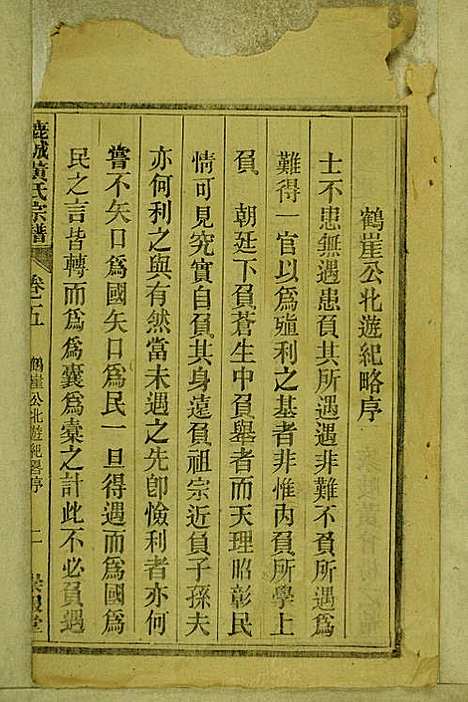 鶴崖公北遊紀略序
士不患無遇患負其所遇遇非難不負所遇為
難得一官以為殖利之基者非惟內負所學上
負　朝廷下負蒼生中負舉者而天理昭彰民
情可見究實自負其身遠負祖宗近負子孫夫
亦何利之與有然當未遇之先卽憸利者亦何
嘗不矢口為國矢口為民一旦得遇而為國為
民之言皆轉而為為囊為橐之計此不必負遇
鹿城黃氏宗譜　卷之五　鶴崖公北遊紀畧序　二